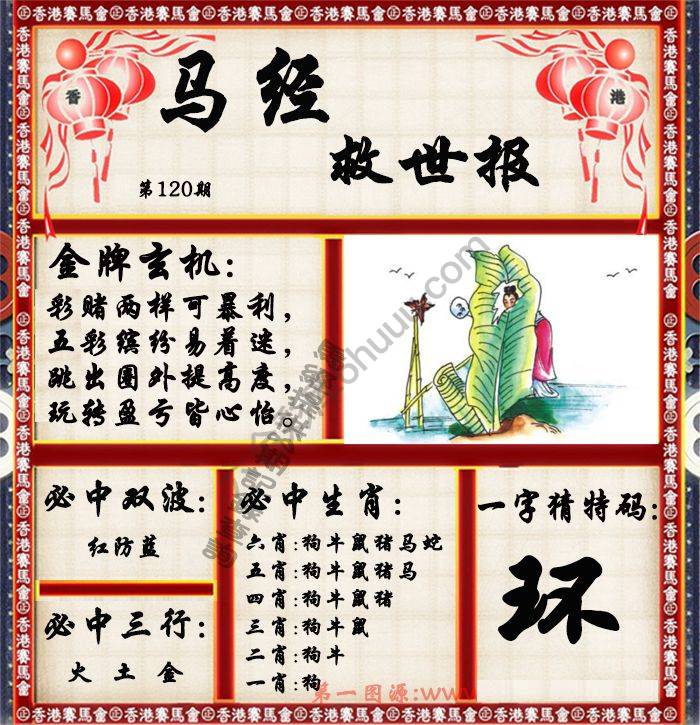 香港賽馬會
香 港
马经
救世报
第120期
金牌玄机:
彩赌两样可暴利,
五彩缤纷易着迷,
跳出圈外提高度,
玩转盈亏皆心怡。
必中双波:
红防蓝
必中三行:
火 土 金
必中生肖:
六肖:狗牛鼠猪马蛇
五肖:狗牛鼠猪马
四肖:狗牛鼠猪
三肖:狗牛鼠
二肖:狗牛
一肖:狗
一字猜特码:
环
第一图源:www